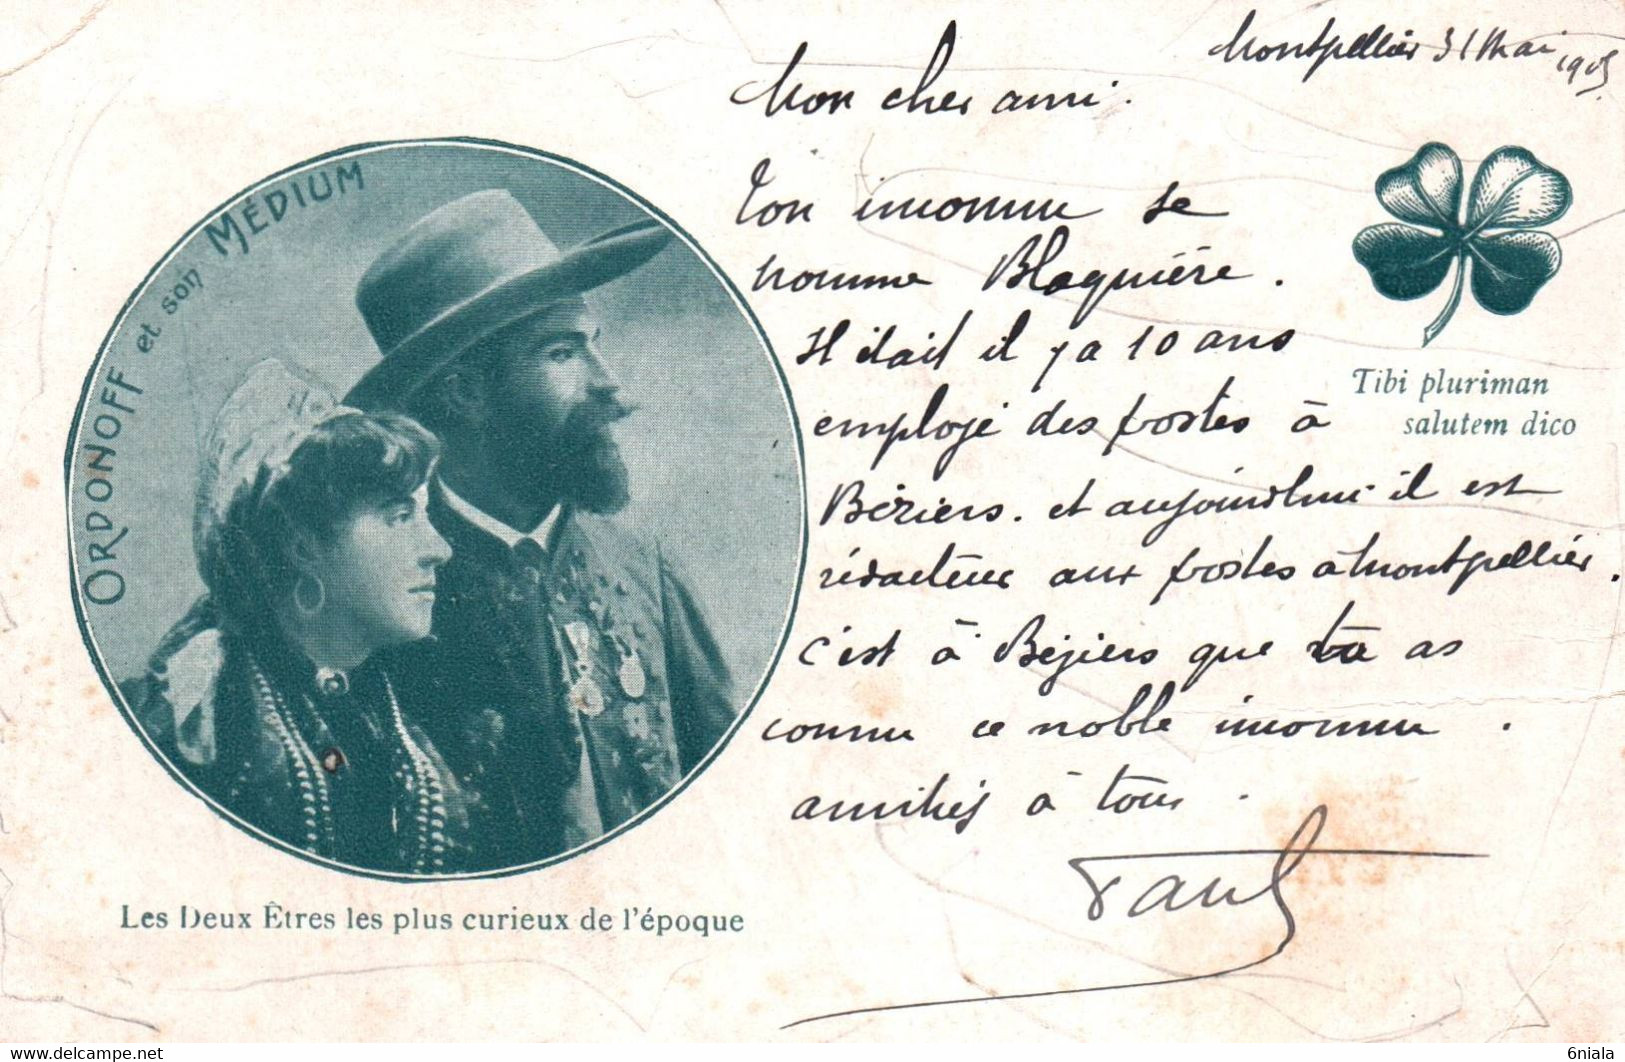 Montpellier 31 Mai 1905
Mon cher ami.
Ton inconnu se
nomme Blaquière.
Il était il y a 10 ans
employé des postes à
Béziers. et aujourd'hui il est
rédacteur aux postes à Montpellier.
c'est à Béziers que tu as
connu ce noble inconnu.
amitiés à tous.
Paul
ORDONOFF et son MÉDIUM
Les Deux Êtres les plus curieux de l'époque
Tibi pluriman
salutem dico
https://www.delcampe.net
6niala